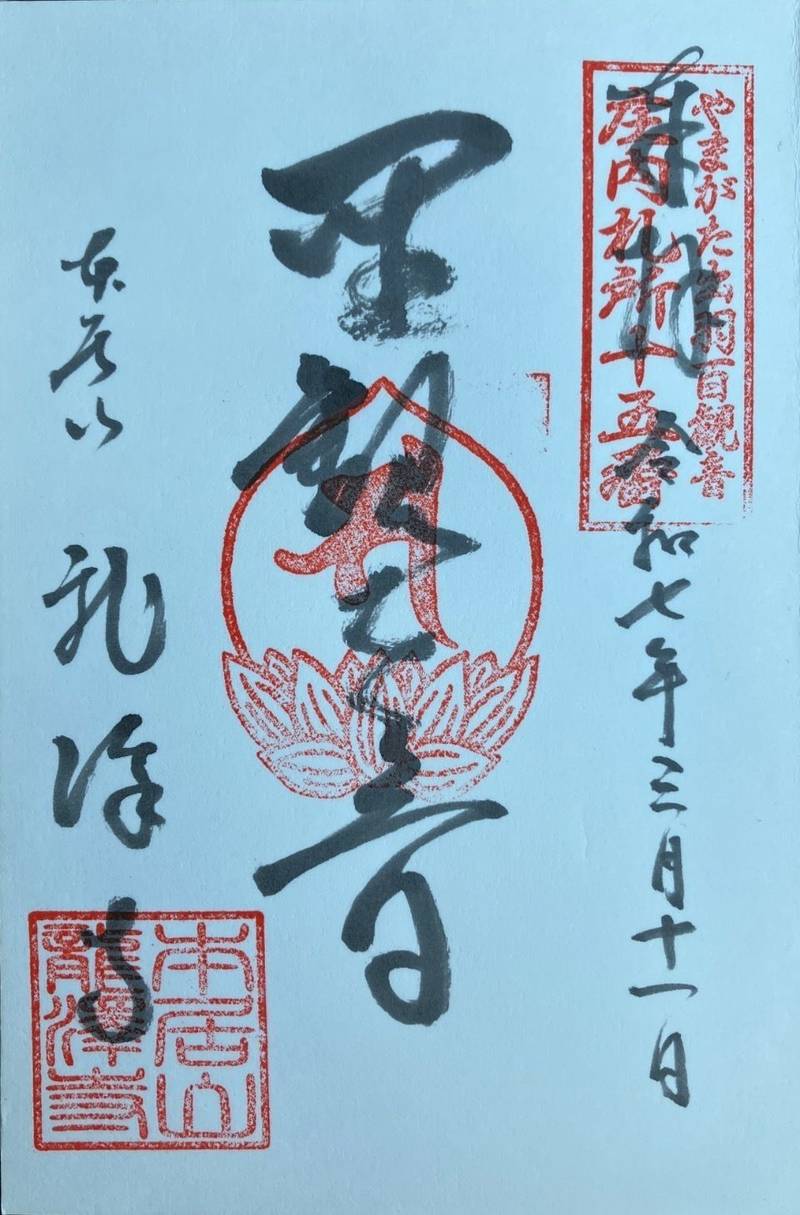 やまがた出羽百観音
庄内札所十五番
奉拝
令和七年三月十一日
聖観世音
本居山 龍澤寺
本居山
龍澤寺